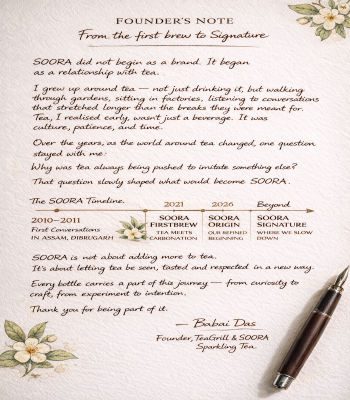 FOUNDER'S NOTE
From the first brew to Signature
SOORA did not begin as a brand. It began
as a relationship with tea.
I grew up around tea — not just drinking it, but walking
through gardens, sitting in factories, listening to conversations
that stretched longer than the breaks they were meant for.
Tea, I realised early, wasn't just a beverage. It was
culture, patience, and time.
Over the years, as the world around tea changed, one question
stayed with me:
Why was tea always being pushed to imitate something else?
That question slowly shaped what would become SOORA.
The SOORA Timeline.
2021
2026
Beyond
2010–2011
First Conversations
IN ASSAM, DIBRUGARH
SOORA
FIRSTBREW
TEA MEETS
CARBONATION
SOORA
ORIGIN
OUR REFINED
BEGINNING
SOORA
SIGNATURE
WHERE WE SLOW
DOWN
SOORA is not about adding more to tea.
It's about letting tea be seen, tasted and respected in a new way.
Every bottle carries a part of this journey — from curiosity to
craft, from experiment to intention.
Thank you for being part of it.
— Babai Das
Founder, TeaGrill & SOORA
Sparkling Tea